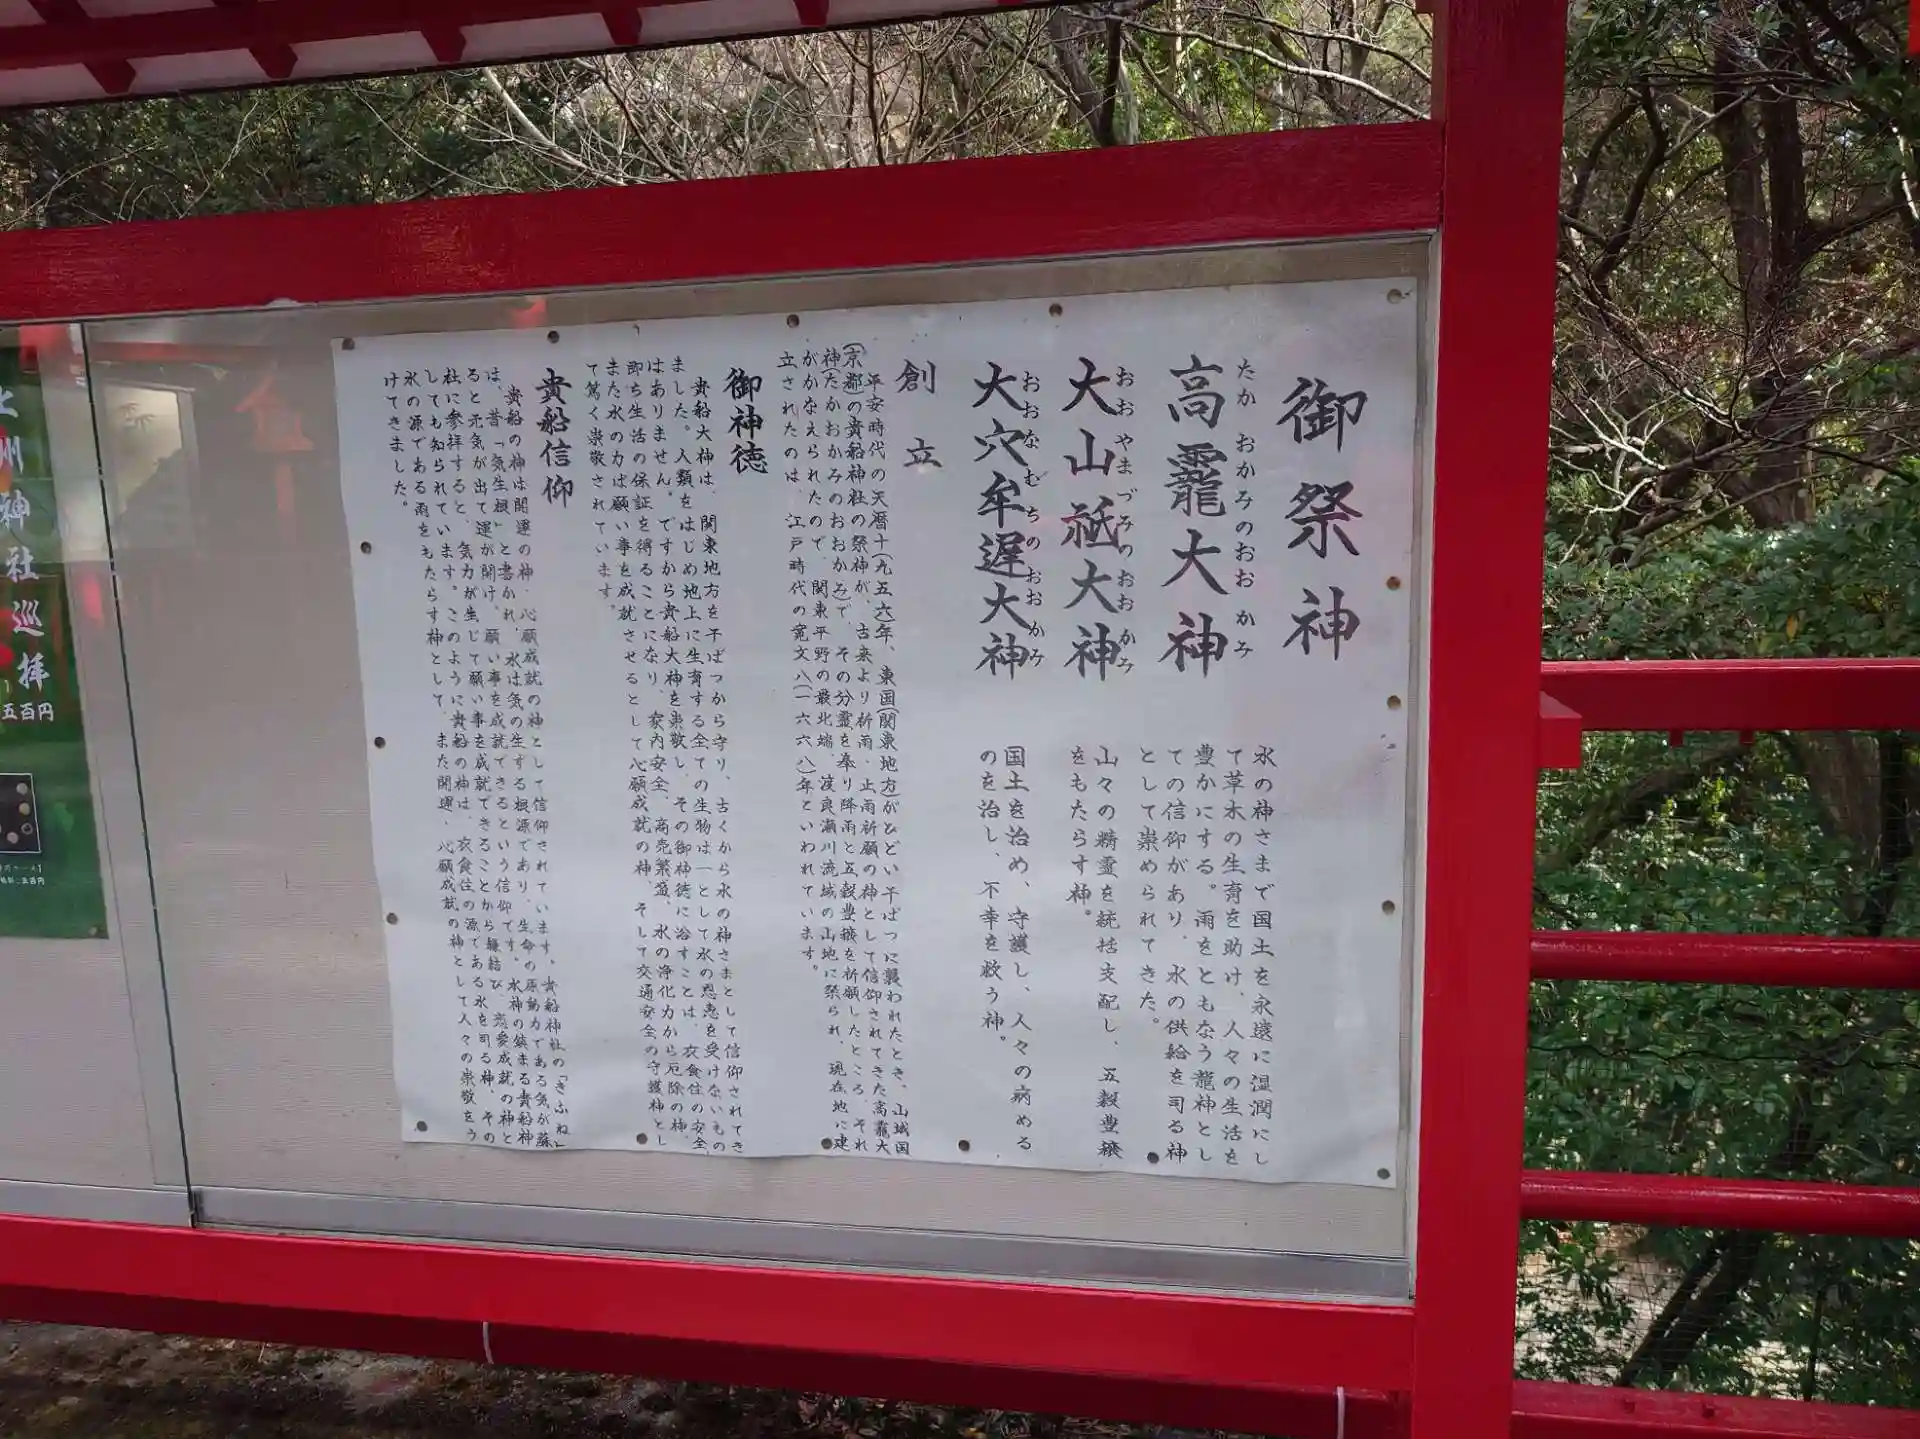 御祭神
高龗大神
たか おかみのおお かみ
水の神さまで国土を永遠に湿潤にし
て草木の生育を助け、人々の生活を
豊かにする。雨をともなう龍神とし
ての信仰があり、水の供給を司る神
として崇められてきた。
大山祗大神
おおやまづみのおおかみ
山々の精霊を統括支配し、五穀豊穣
をもたらす神。
大穴牟遅大神
おおなむぢのおおかみ
国土を治め、守護し、人々の病める
のを治し、不幸を救う神。
創立
平安時代の天暦十(九五六)年、東国(関東地方)がひどい干ばつに襲われたとき、山城国
(京都)の貴船神社の祭神が、古来より祈雨・止雨祈願の神として信仰されてきた高龗大
神(たかおかみのおおかみ)で、その分霊を奉り降雨と五穀豊穣を祈願したところ、それ
がかなえられたので、関東平野の最北端、渡良瀬川流域の山地に祭られ、現在地に建
立されたのは、江戸時代の寛文八(一六六八)年といわれています。
御神徳
貴船大神は、関東地方を干ばつから守り、古くから水の神さまとして信仰されてき
ました。人類をはじめ地上に生育する全ての生物は一として水の恩恵を受けないもの
はありません。ですから貴船大神を崇敬し、その御神徳に浴すことは、衣食住の安全、
即ち生活の保証を得ることになり、家内安全、商売繁盛、水の浄化力から厄除の神、
また水の力は願い事を成就させるとして心願成就の神、そして交通安全の守護神とし
て篤く崇敬されています。
貴船信仰
貴船の神は開運の神・心願成就の神として信仰されています。貴船神社の「きふね」
は、昔「気生根」と書かれ、水は気の生ずる根源であり、生命の原動力である気が蘇
ると元気が出て運が開け、願い事を成就できるという信仰です。水神の鎮まる貴船神
社に参拝すると、気力が生じて願い事を成就できることから縁結び、恋愛成就の神と
しても知られています。このように貴船の神は、衣食住の源である水を司る神、その
水の源である雨をもたらす神として、また開運・心願成就の神として人々の崇敬をう
けてきました。
州神社巡拝
五百円